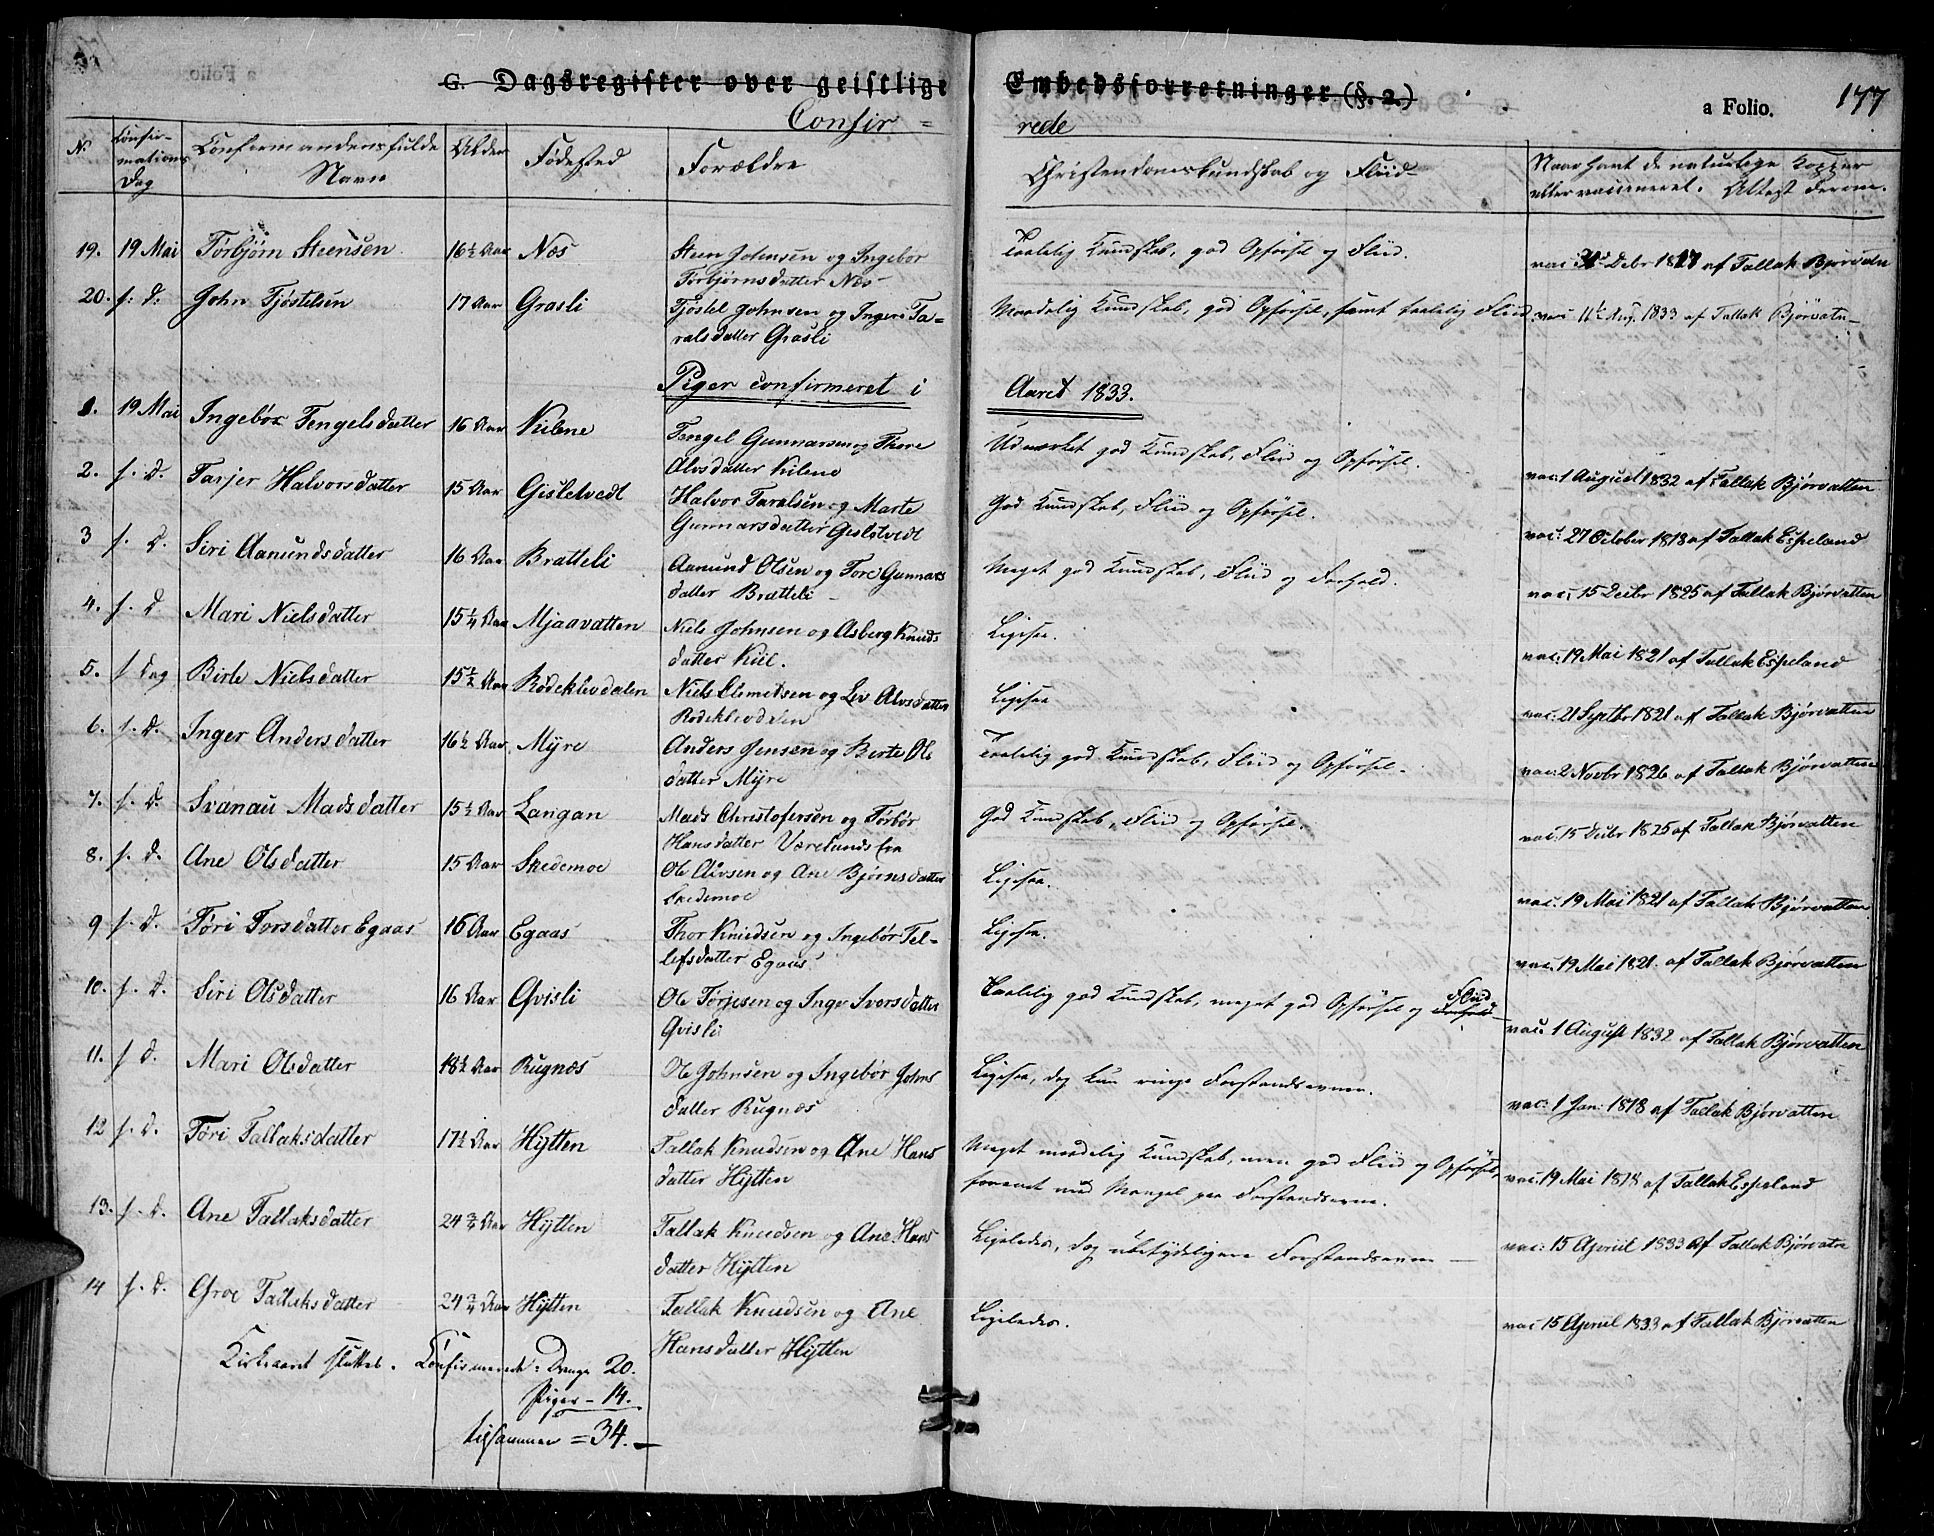 G. Dagsregister over geistlige Embedsforretninger (§. 2.) a Folio. 177
Confir=rede
N. Confirmations Dag Confirmandens fulde Navn Alder Fødested Forældre Christendomskundskab og Fliid Naar havt de naturlige Kopper eller vaccineret. Attest derom.
19. 19 Mai Torbjørn Steensen 16½ Aar Næs Steen Johnsen og Ingebor Torbjørnsdatter Næs Taalelig Kundskab, god Opførsel og Fliid. vac: Debr 1817 af Tallak Bjørvatn
20. s: d: John Tjøstelsen 17 Aar Grasli Tjøstel Johnsen og Inger Taralsdatter Grasli Maadelig Kundskab, god Opførsel, samt taalelig Fliid vac: Aug 1833 af Tallak Bjørvatn
Piger confirmeret i Aaret 1833.
1. 19 Mai Ingebør Tengelsdatter 16 Aar Kilene Tengel Gunnarsen og Thore Alvsdatter Kilene Udmærket god Kundskab, Fliid og Opførsel. vac: 1 August 1832 af Tallak Bjørvatten
2. s. d. Tarjer Halvorsdatter 15 Aar Gisletvedt Halvor Taralsen og Marte Gunnarsdatter Gisletvedt God Kundskab, Fliid og Opførsel. vac: 27 October 1818 af Tallak Espeland
3 s. d. Siri Aanundsdatter 16 Aar Bratteli Aanund Olsen og Tore Gunnarsdatter Bratteli Meget god Kundskab, Fliid og Forhold. vac: 15 Decbr 1825 af Tallak Bjørvatten
4. s. d Mari Nielsdatter 15¼ Aar Mjaavatten Niels Johnsen og Asberg Knudsdatter Kiil. Ligesaa. vac: 19 Mai 1821 af Tallak Espeland
5. s Dag Birte Nielsdatter 15½ Aar Rødeklevdalen Niels Clemetsen og Liv Alvsdatter Rødeklevdalen Ligesaa vac: 21 Septbr 1821 af Tallak Bjørvatten
6. s. d. Inger Andersdatter 16½ Aar Myre Anders Jensen og Birte Olsdatter Myre Taalelig god Kundskab, Fliid og Opførsel. vac: 2 Novbr 1826 af Tallak Bjørvatten
7. s. d. Svanau Madsdatter 15½ Aar Langan Mads Christofersen og Torbør Hansdatter God Kundskab, Fliid og Opførsel. vac: 15 Decbr 1825 af Tallak Bjørvatten
8. s. d. Ane Olsdatter 15 Aar Skedemoe Ole Alvsen og Ane Bjørnsdatter Skedemoe Ligesaa. vac: 19 Mai 1821 af Tallak Bjørvatten
9 s. d. Tøri Torsdatter Egaas 16 Aar Egaas Thor Knudsen og Ingebør Tellefsdatter Egaas Ligesaa. vac: 19 Mai 1821. af Tallak Bjørvatten
10. s. d. Siri Olsdatter 16 Aar Qvisli Ole Tørjesen og Inger Ivorsdatter Qvisli Taalelig god Kundskab, meget god Opførsel og Forhold Fliid vac: 1 August 1832 af Tallak Bjørvatten
11. s d. Mari Olsdatter 18½ Aar Rugnæs Ole Johnsen og Ingebør Johnsdatter Rugnæs Ligesaa, dog kun ringe Forstandsevner. vac: 1 Jan: 1818 af Tallak Bjørvatten
12 s. d. Tøri Tallaksdatter 17½ Aar Hytten Tallak Knudsen og Ane Hansdatter Hytten Meget maadelig Kundskab, men god Fliid og Opførsel, forenet med Mangel paa Forstandsevne. vac: 19 Mai 1818 af Tallak Espeland
13. s. d. Ane Tallaksdatter 24¾ Aar Hytten Tallak Knudsen og Ane Hansdatter Hytten Ligeledes, dog ubetydeligere Forstandsevne vac: 15 Apriil 1833 af Tallak Bjørvatn
14 s. d. Groe Tallaksdatter 24¾ Aar Hytten Tallak Knudsen og Ane Hansdatter Hytten Ligeledes. vac: 15 Apriil 1833 af Tallak Bjørvatten
Kirkeaaret sluttet. Confirmerede: Drenge 20.
Piger – 14.
tilsammen = 34.